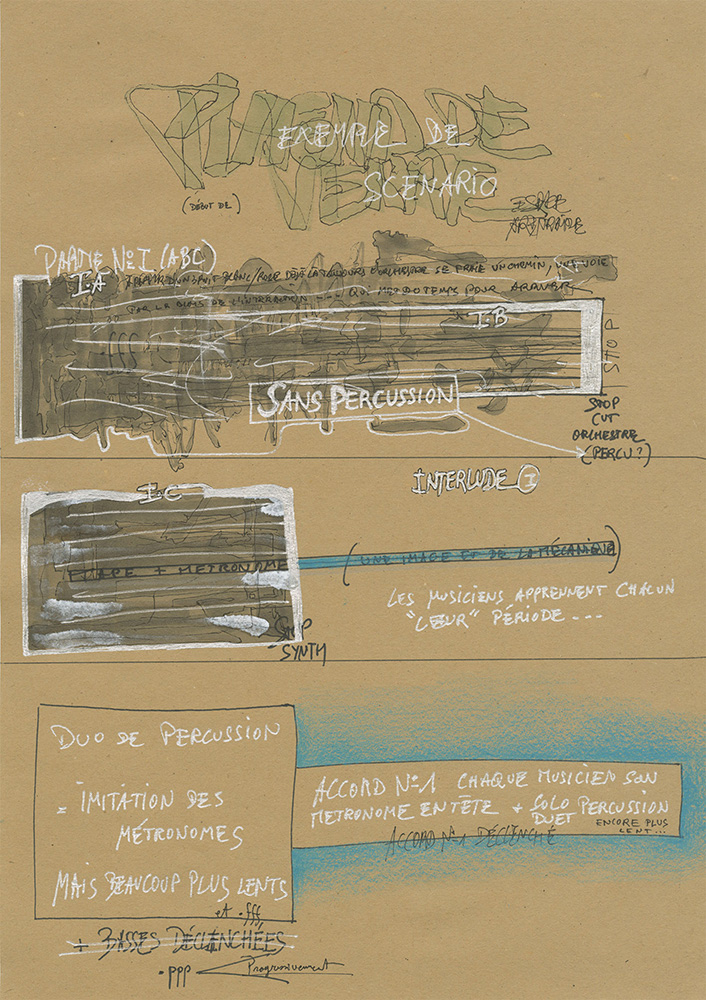 EXEMPLE DE
SCENARIO
(DÉBUT DE)
ESPACE
PARTIE No I (ABC)
I.A
À PARTIR D'UN BRUIT BLANC/ROSE DÉJÀ LÀ TOUJOURS L'ORCHESTRE SE FRAIE UN CHEMIN, UNE VOIE
QUI MET DU TEMPS POUR ARRIVER
I.B
STOP
SANS PERCUSSION
STOP
CUT
ORCHESTRE
(PERCU?)
I.C
INTERLUDE I
+ METRONOME
(UNE IMAGE ET DE LA MÉCANIQUE)
LES MUSICIENS APPRENNENT CHACUN
"LEUR" PÉRIODE ---
STOP
SYNTH
DUO DE PERCUSSION
= IMITATION DES
MÉTRONOMES
MAIS BEAUCOUP PLUS LENTS
et .fff
+ BASSES DÉCLENCHÉES
.ppp < Progressivement
ACCORD No 1 CHAQUE MUSICIEN SON
METRONOME EN TÊTE + SOLO PERCUSSION
DUET ENCORE PLUS
LENT...
ACCORD No 1 DÉCLENCHÉ